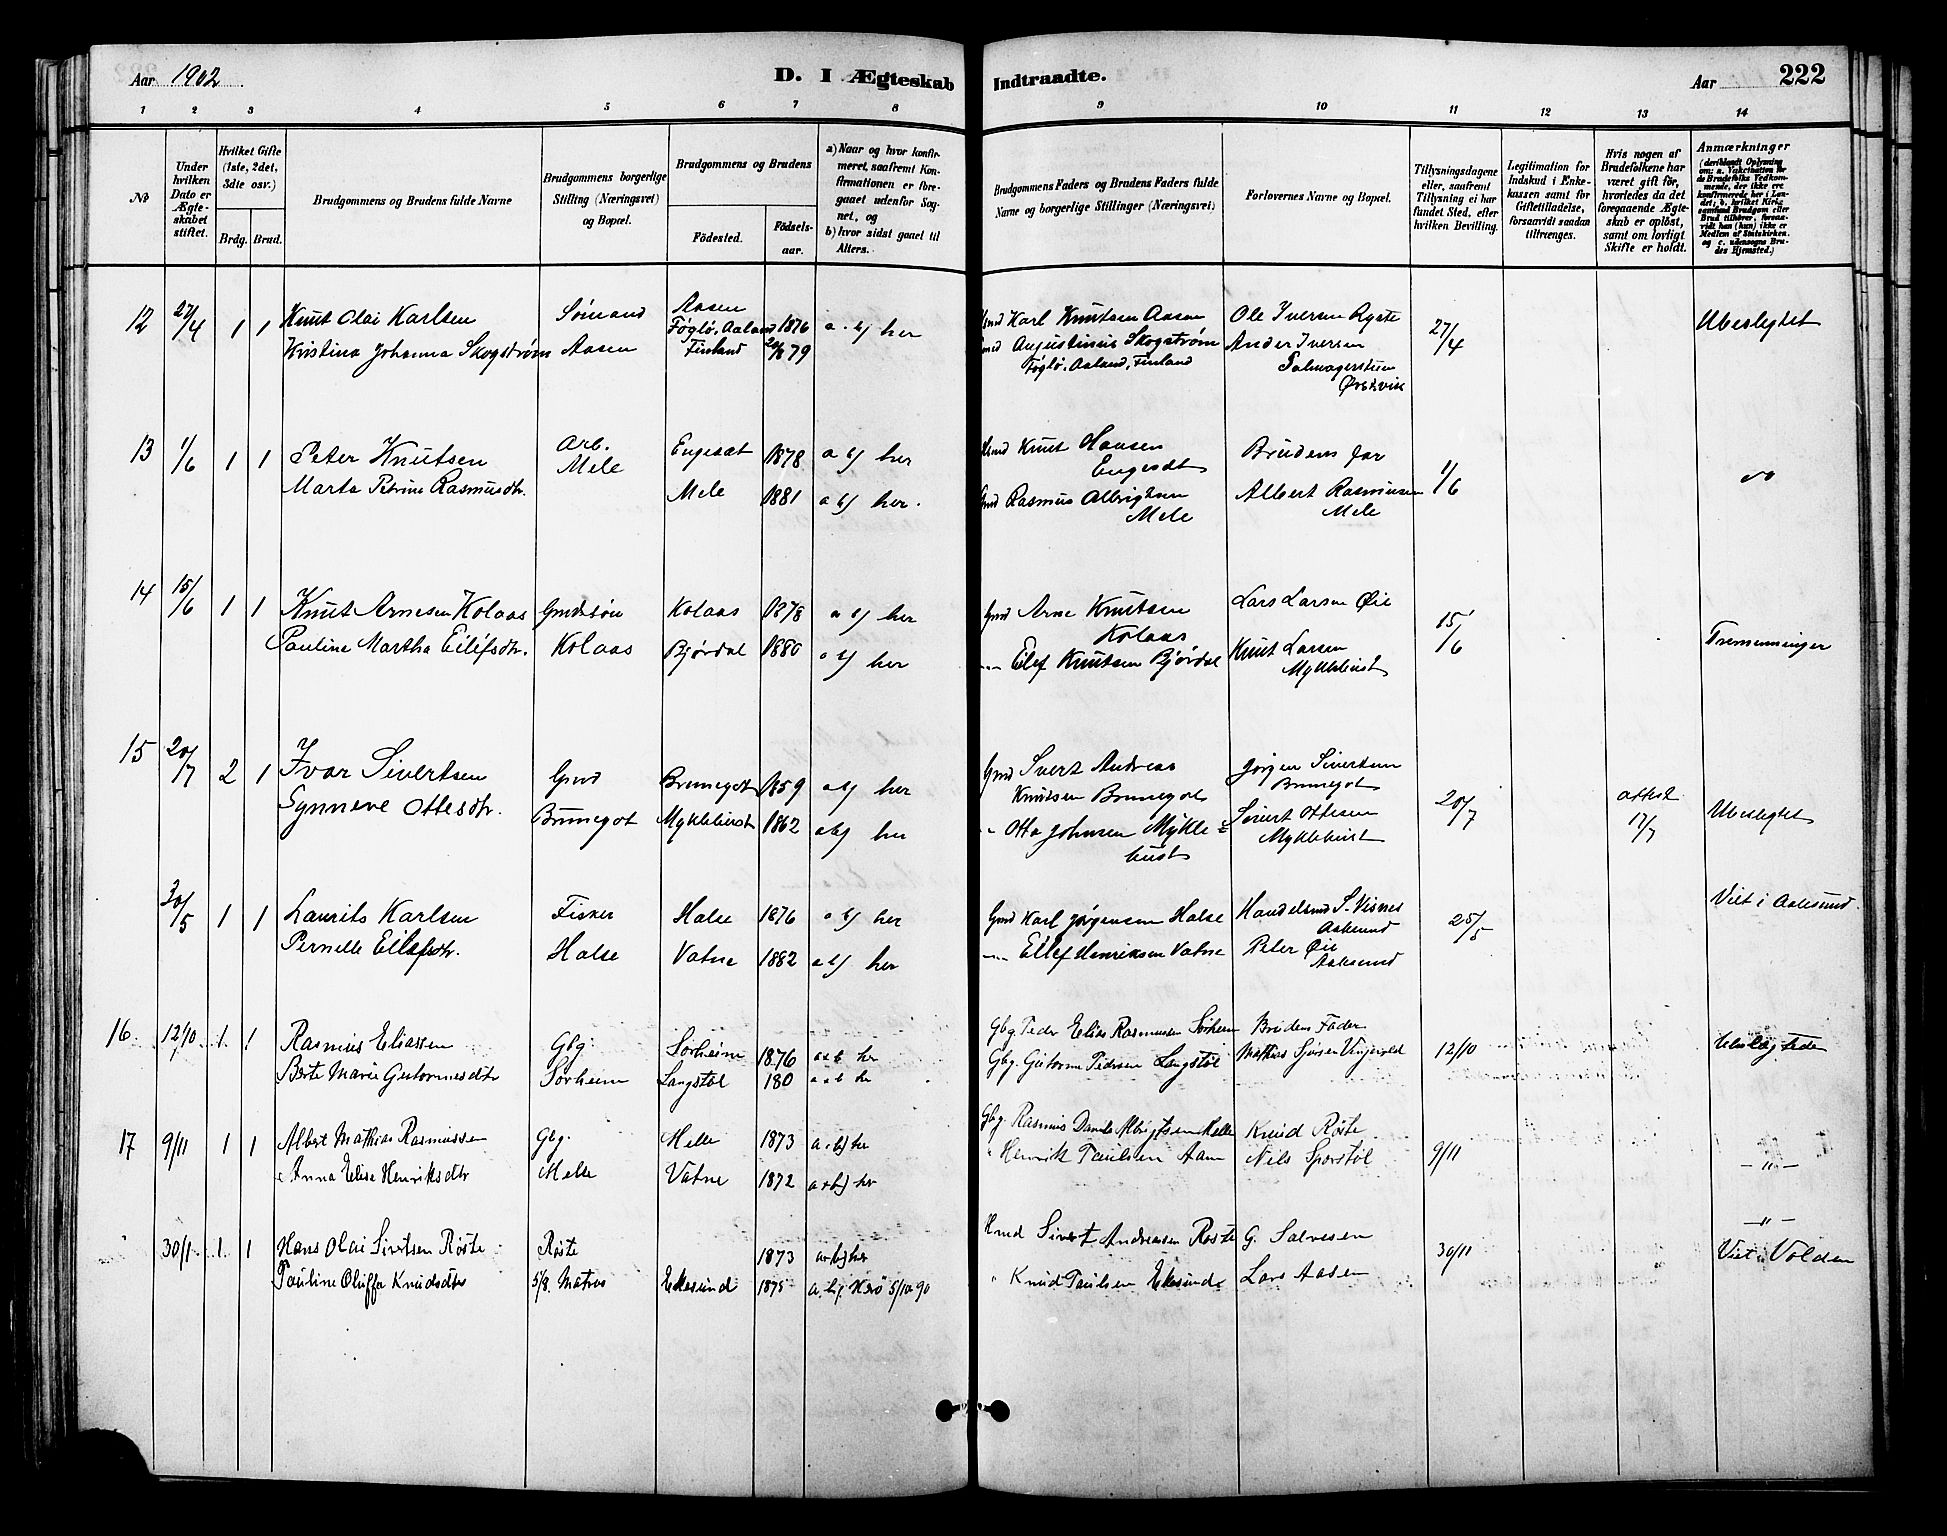 Aar 1902
D. I Ægteskab Indtraadte.
Aar 222
1 2 3 4 5 6 7 8 9 10 11 12 13 14
No
Under hvilken Dato er Ægteskabet stiftet.
Hvilket Gifte (1ste, 2det, 3die osv.)
Brdg. Brud.
Brudgommens og Brudens fulde Navne
Brudgommens borgerlige Stilling (Næringsvei) og Bopæl.
Brudgommens og Brudens
Födested. Födselsaar.
a) Naar og hvor konfirmeret, saafremt Konfirmationen er foregaaet udenfor Sognet, og
b) hvor sidst gaaet til Alters.
Brudgommens Faders og Brudens Faders fulde Navne og borgerlige Stillinger (Næringsvei)
Forlovernes Navne og Bopæl.
Tillysningsdagene eller, saafremt Tillysning ei har fundet Sted, efter hvilken Bevilling.
Legitimation for Indskud i Enkekassen samt for Giftetilladelse, forsaavidt saadan tiltrænges.
Hvis nogen af Brudefolkene har været gift för, hvorledes da det foregaaende Ægteskab er oplöst, samt om lovligt Skifte er holdt.
Anmærkninger
12 27/4 1 1 Knut Olai Karlsen Sömand Aasen 1876 a. b) her
Kristina Johanna Skogström Aasen Föglö, Aaland Finland 79
Karl Knutsen Aasen Ole Iversen Ryste 27/4 Ubeslegtet
Augustinus Skogström Ander Iversen
Föglö, Aaland, Finland Ørskvik
13 1/6 1 1 Peter Knutsen Arb. Engeset 1878 a b) her
Marta Petrine Rasmusdtr. Mele Mele 1881 a b) her.
Knut Hansen Brudens far 1/6
Engesdt
Gmd Rasmus Albrigtsen Albert Rasmusen
Mele Mele
14 15/6 1 1 Knut Arnesen Kolaas Gmdssön Kolaas 1878 a b) her
Pauline Martha Eilefsdtr. Kolaas Bjørdal 1880 a b) her
Gmd Arne Knutsen Lars Larsen Øie 15/6 Tremenninger
Kolaas
Elef Knutsen Bjørdal Knut Larsen
Myklebust
15 20/7 2 1 Ivar Sivertsen Gmd Brunegot 1859 a b) her
Synneve Ottesdtr. Brunegot Myklebust 1862 a b) her
Gmd Svert Andreas Jørgen Sivertsen 20/7 attest 17/7 Ubeslegtet
Knutsen Brunegot Brunegot
" Otto Johnsen Mykle- Sivert Ottesen
bust Myklebust
30/5 1 1 Laurits Karlsen Fisker Halse 1876 a b) her
Pernelle Eilefsdtr. Halse Vatne 1882 a b) her
Gmd Karl Jørgensen Halse Handelsmd S. Visnes 25/5 Viet i Aalesund.
Aalesund
Ellef Henriksen Vatne Peter Øie
Aalesund
16 12/10 1 1 Rasmus Eliassen Gbg. Sørheim 1876 a+b her
Berte Marie Guttormsdtr Sørheim Langstøl 180 a+b her
Gbg. Peder Elias Rasmussen Sørheim Brudens Fader 12/10
Gbg. Guttorm Pedersen Langstøl Mathias
17 9/11 1 1 Albert Mathias Rasmussen Gbg. Melle 1873 a+b) her
Anna Elise Henriksdtr Melle Vatne 1872 a+b) her
Gbg. Rasmus Albrigtsen Melle Knud Røste 9/11 -"-
" Henrik Paulsen Aam Nils Sporstøl
30/1 1 1 Hans Olai Sivertsen Røste Røste 1873 a+b) her
Pauline Oluffa Knudsdtr Matros Ekesund 1875 a. b). Herø 5/10 90
Sivert Andreasen Røste G. Salvesen 30/11 -"-
" Knud Paulsen Ekesund Lars Aasen Viet i Volden